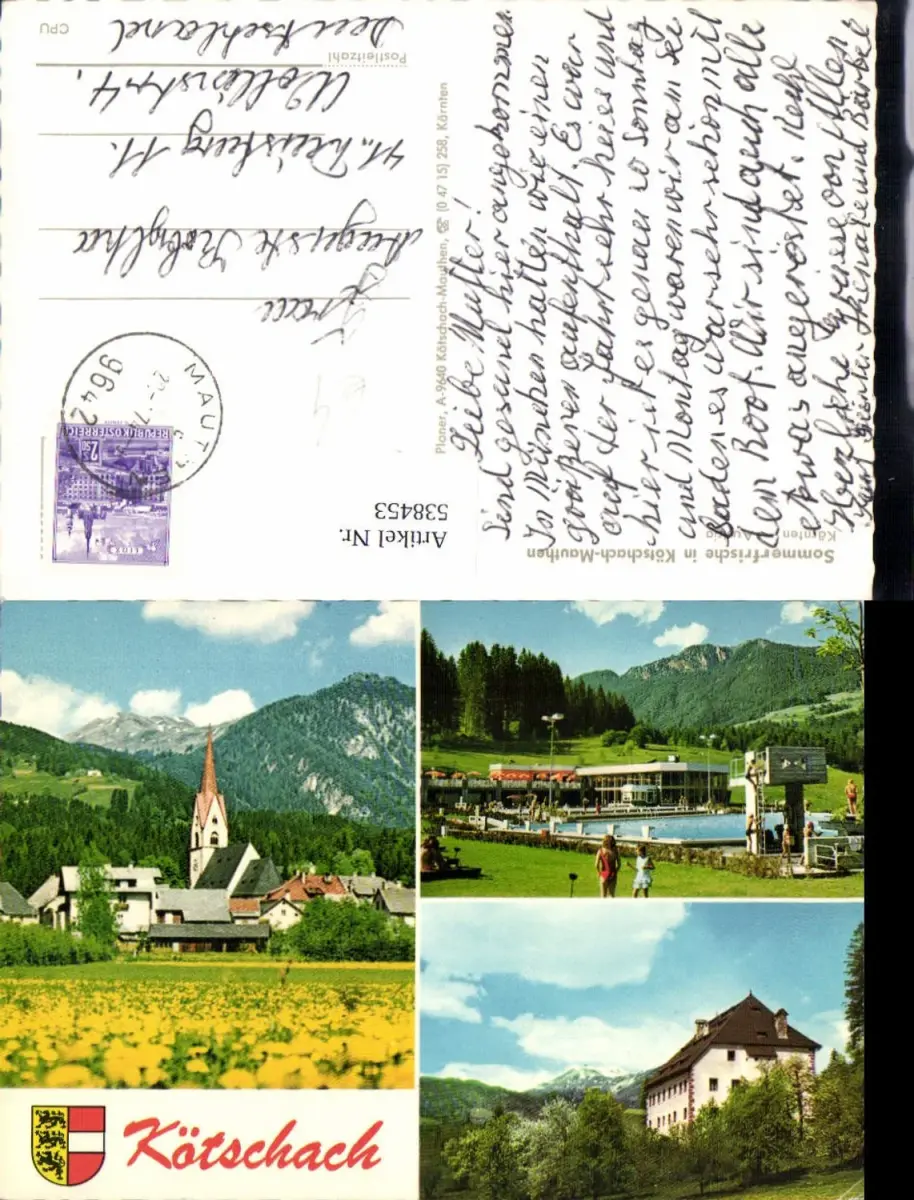 Sommerfrische in Kötschach-Mauthen
Kärnten Austria
Artikel Nr.
538453
Liebe Mutter!
Sind gesund hier angekommen
In München hatten wir einen
großen aufenthalt. Es war
auf der Fahrt sehr heies und
hier ist es genau so Sonntag
und Montag waren wir am See
Baden es war sehr schön mit
dem Boot. Wir sind auch alle
etwas angeröstet. Recht
Herzliche Grüsse von Allen
Günter und Bärbel
Planer, A-9640 Kötschach-Mauthen, ☏ (0 47 15) 258, Kärnten
REPUBLIK ÖSTERREICH
2.50
MAUTHEN
9642
Frau
Auguste
41. Duisburg 11.
4.
Postleitzahl
Deutschland
CPU
Kötschach